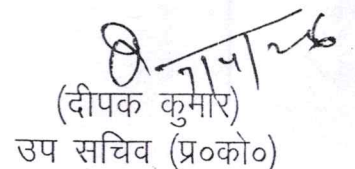 (दीपक कुमार)
उप सचिव (प्र०को०)